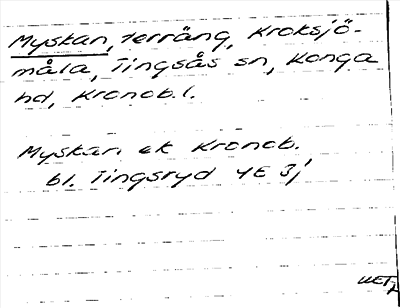 Myskan, terräng, Kroksjö-
måla, Tingsås sn, Konga
hd, Kronob.l.
Myskan ek Kronob.
bl. Tingsryd 4E 3j